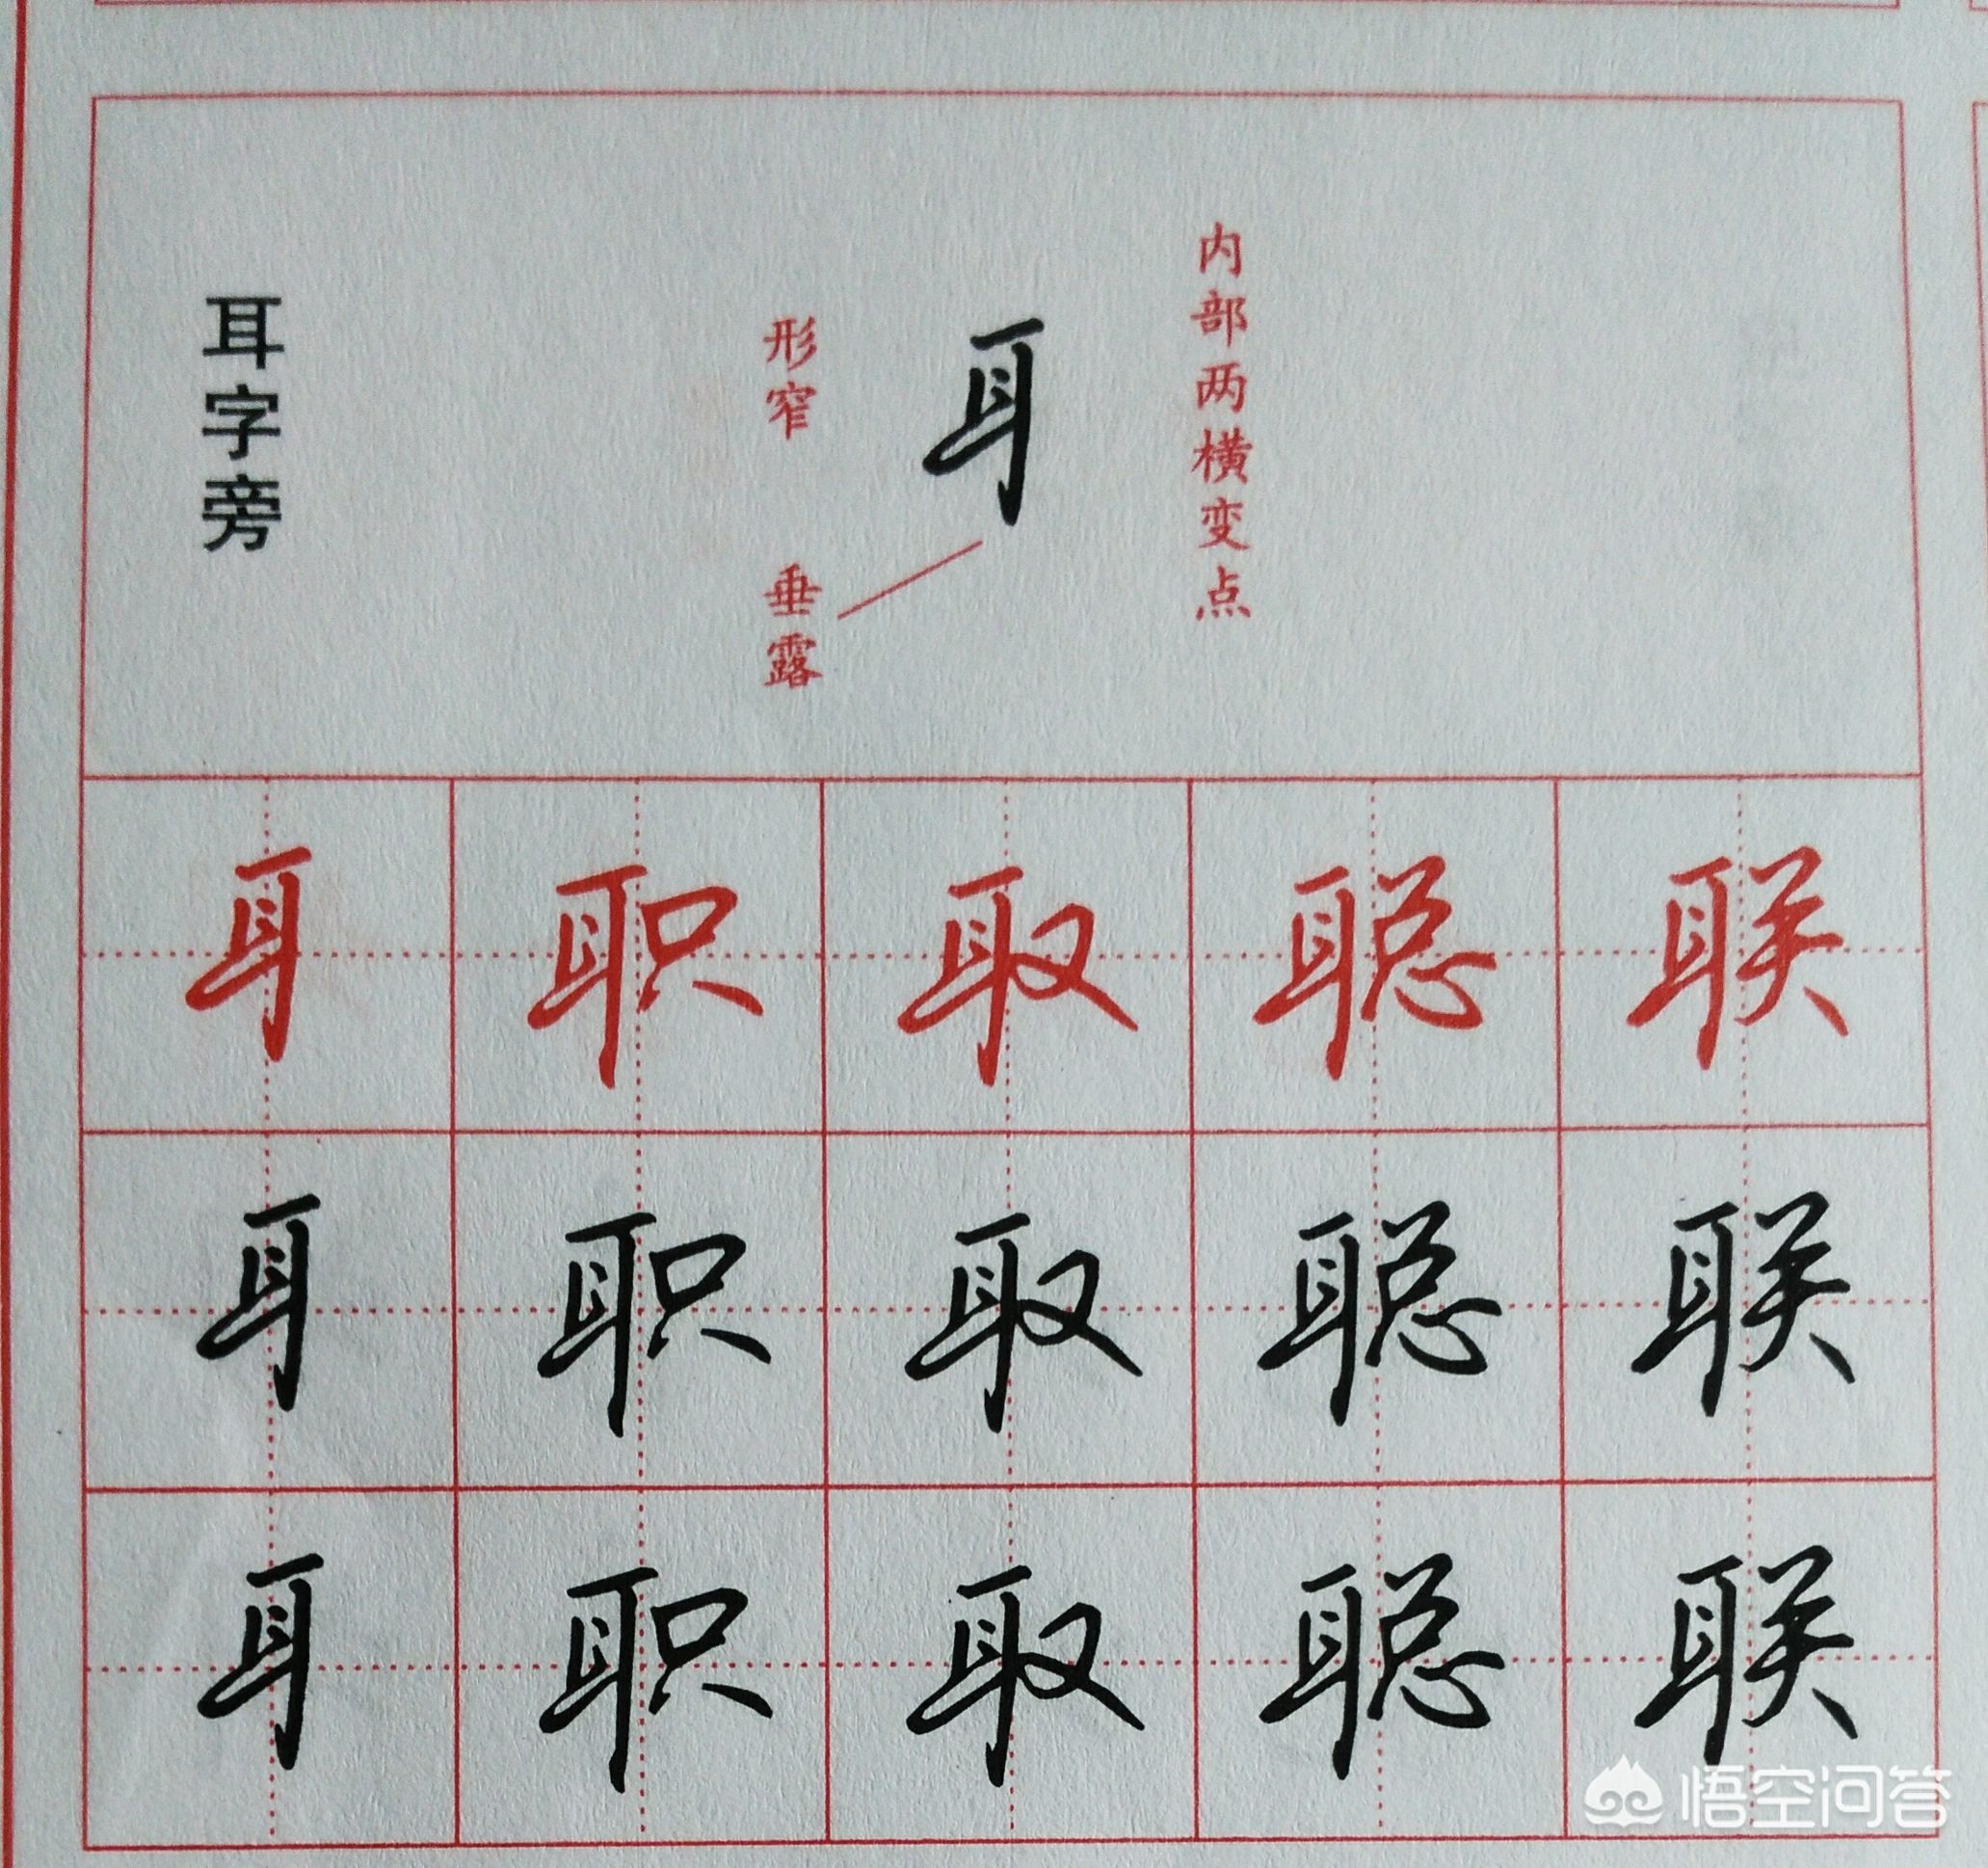 耳字旁
形窄
垂露
耳
内部两横变点
耳 职 取 聪 联
耳 职 取 聪 联
耳 职 取 聪 联
悟空问答